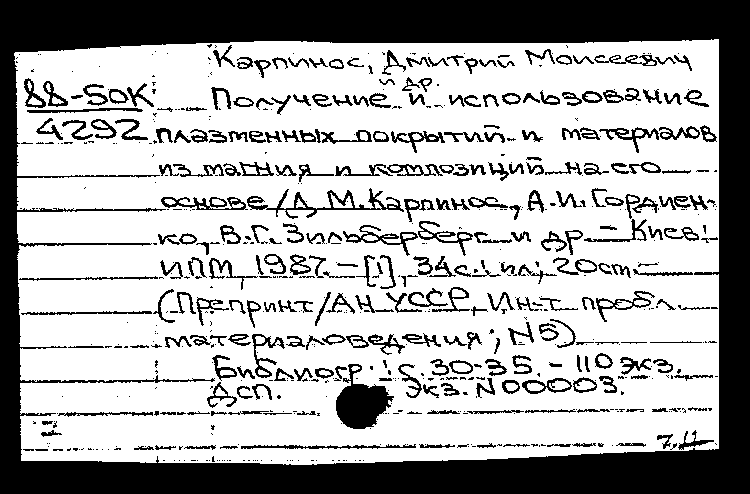 Карпинос, Дмитрий Моисеевич
и др.
88-50К
4292
Получение и использование
плазменных покрытий и материалов
из магния и композиций на его
основе / Д.М. Карпинос, А.И. Гордиен-
ко, В.Г. Зильберберг и др. – Киев:
ИПМ, 1987. – [1], 34 с.: ил; 20 см. –
(Препринт / АН УССР, Ин-т пробл.
материаловедения; N5)
Библиогр.: с. 30-35. – 110 экз.
Дсп. Экз. N00003.
7.11